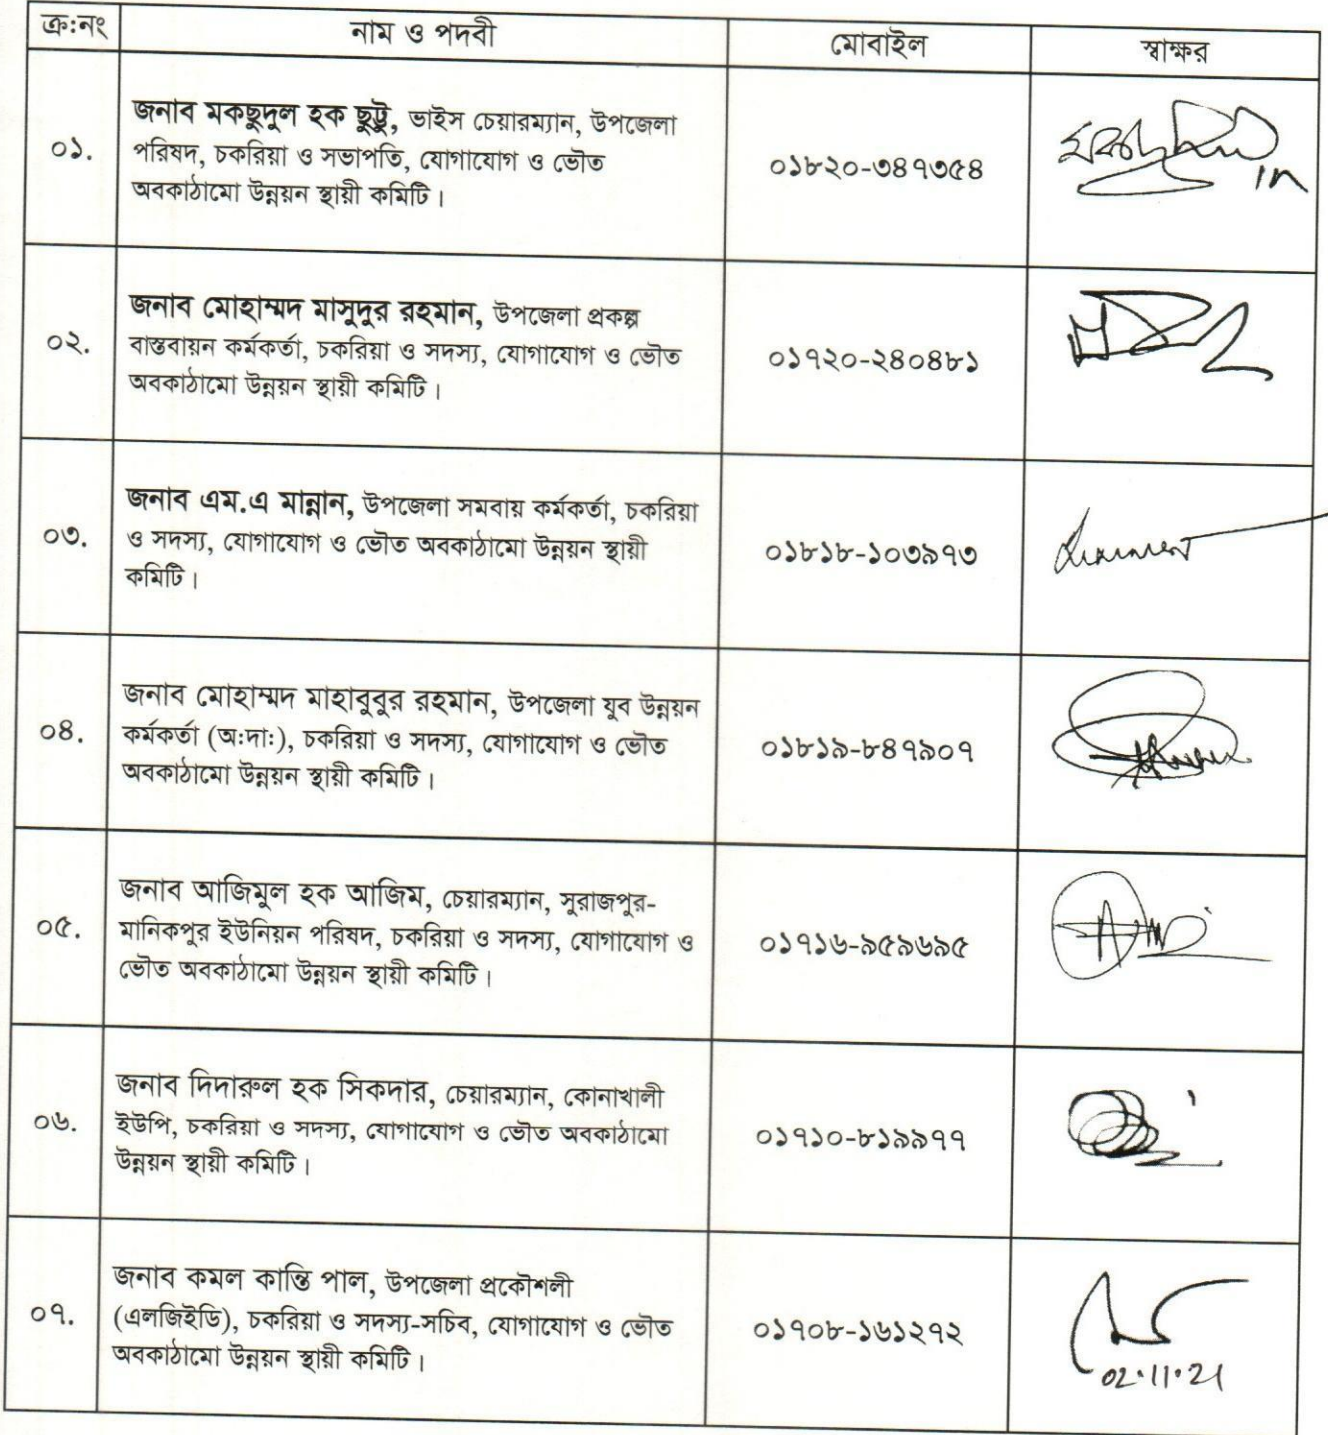 ক্র:নং নাম ও পদবী মোবাইল স্বাক্ষর
০১.
জনাব মকছুদুল হক ছুট্টু, ভাইস চেয়ারম্যান, উপজেলা
পরিষদ, চকরিয়া ও সভাপতি, যোগাযোগ ও ভৌত
অবকাঠামো উন্নয়ন স্থায়ী কমিটি।
০১৮২০-৩৪৭৩৫৪
০২.
জনাব মোহাম্মদ মাসুদুর রহমান, উপজেলা প্রকল্প
বাস্তবায়ন কর্মকর্তা, চকরিয়া ও সদস্য, যোগাযোগ ও ভৌত
অবকাঠামো উন্নয়ন স্থায়ী কমিটি।
০১৭২০-২৪০৪৮১
০৩.
জনাব এম.এ মান্নান, উপজেলা সমবায় কর্মকর্তা, চকরিয়া
ও সদস্য, যোগাযোগ ও ভৌত অবকাঠামো উন্নয়ন স্থায়ী
কমিটি।
০১৮১৮-১০৩৯৭৩
০৪.
জনাব মোহাম্মদ মাহাবুবুর রহমান, উপজেলা যুব উন্নয়ন
কর্মকর্তা (অ:দা:), চকরিয়া ও সদস্য, যোগাযোগ ও ভৌত
অবকাঠামো উন্নয়ন স্থায়ী কমিটি।
০১৮১৯-৮৪৭৯০৭
০৫.
জনাব আজিমুল হক আজিম, চেয়ারম্যান, সুরাজপুর-
মানিকপুর ইউনিয়ন পরিষদ, চকরিয়া ও সদস্য, যোগাযোগ ও
ভৌত অবকাঠামো উন্নয়ন স্থায়ী কমিটি।
০১৭১৬-৯৫৯৬৯৫
০৬.
জনাব দিদারুল হক সিকদার, চেয়ারম্যান, কোনাখালী
ইউপি, চকরিয়া ও সদস্য, যোগাযোগ ও ভৌত অবকাঠামো
উন্নয়ন স্থায়ী কমিটি।
০১৭১০-৮১৯৯৭৭
০৭.
জনাব কমল কান্তি পাল, উপজেলা প্রকৌশলী
(এলজিইডি), চকরিয়া ও সদস্য-সচিব, যোগাযোগ ও ভৌত
অবকাঠামো উন্নয়ন স্থায়ী কমিটি।
০১৭০৮-১৬১২৭২
02.11.21